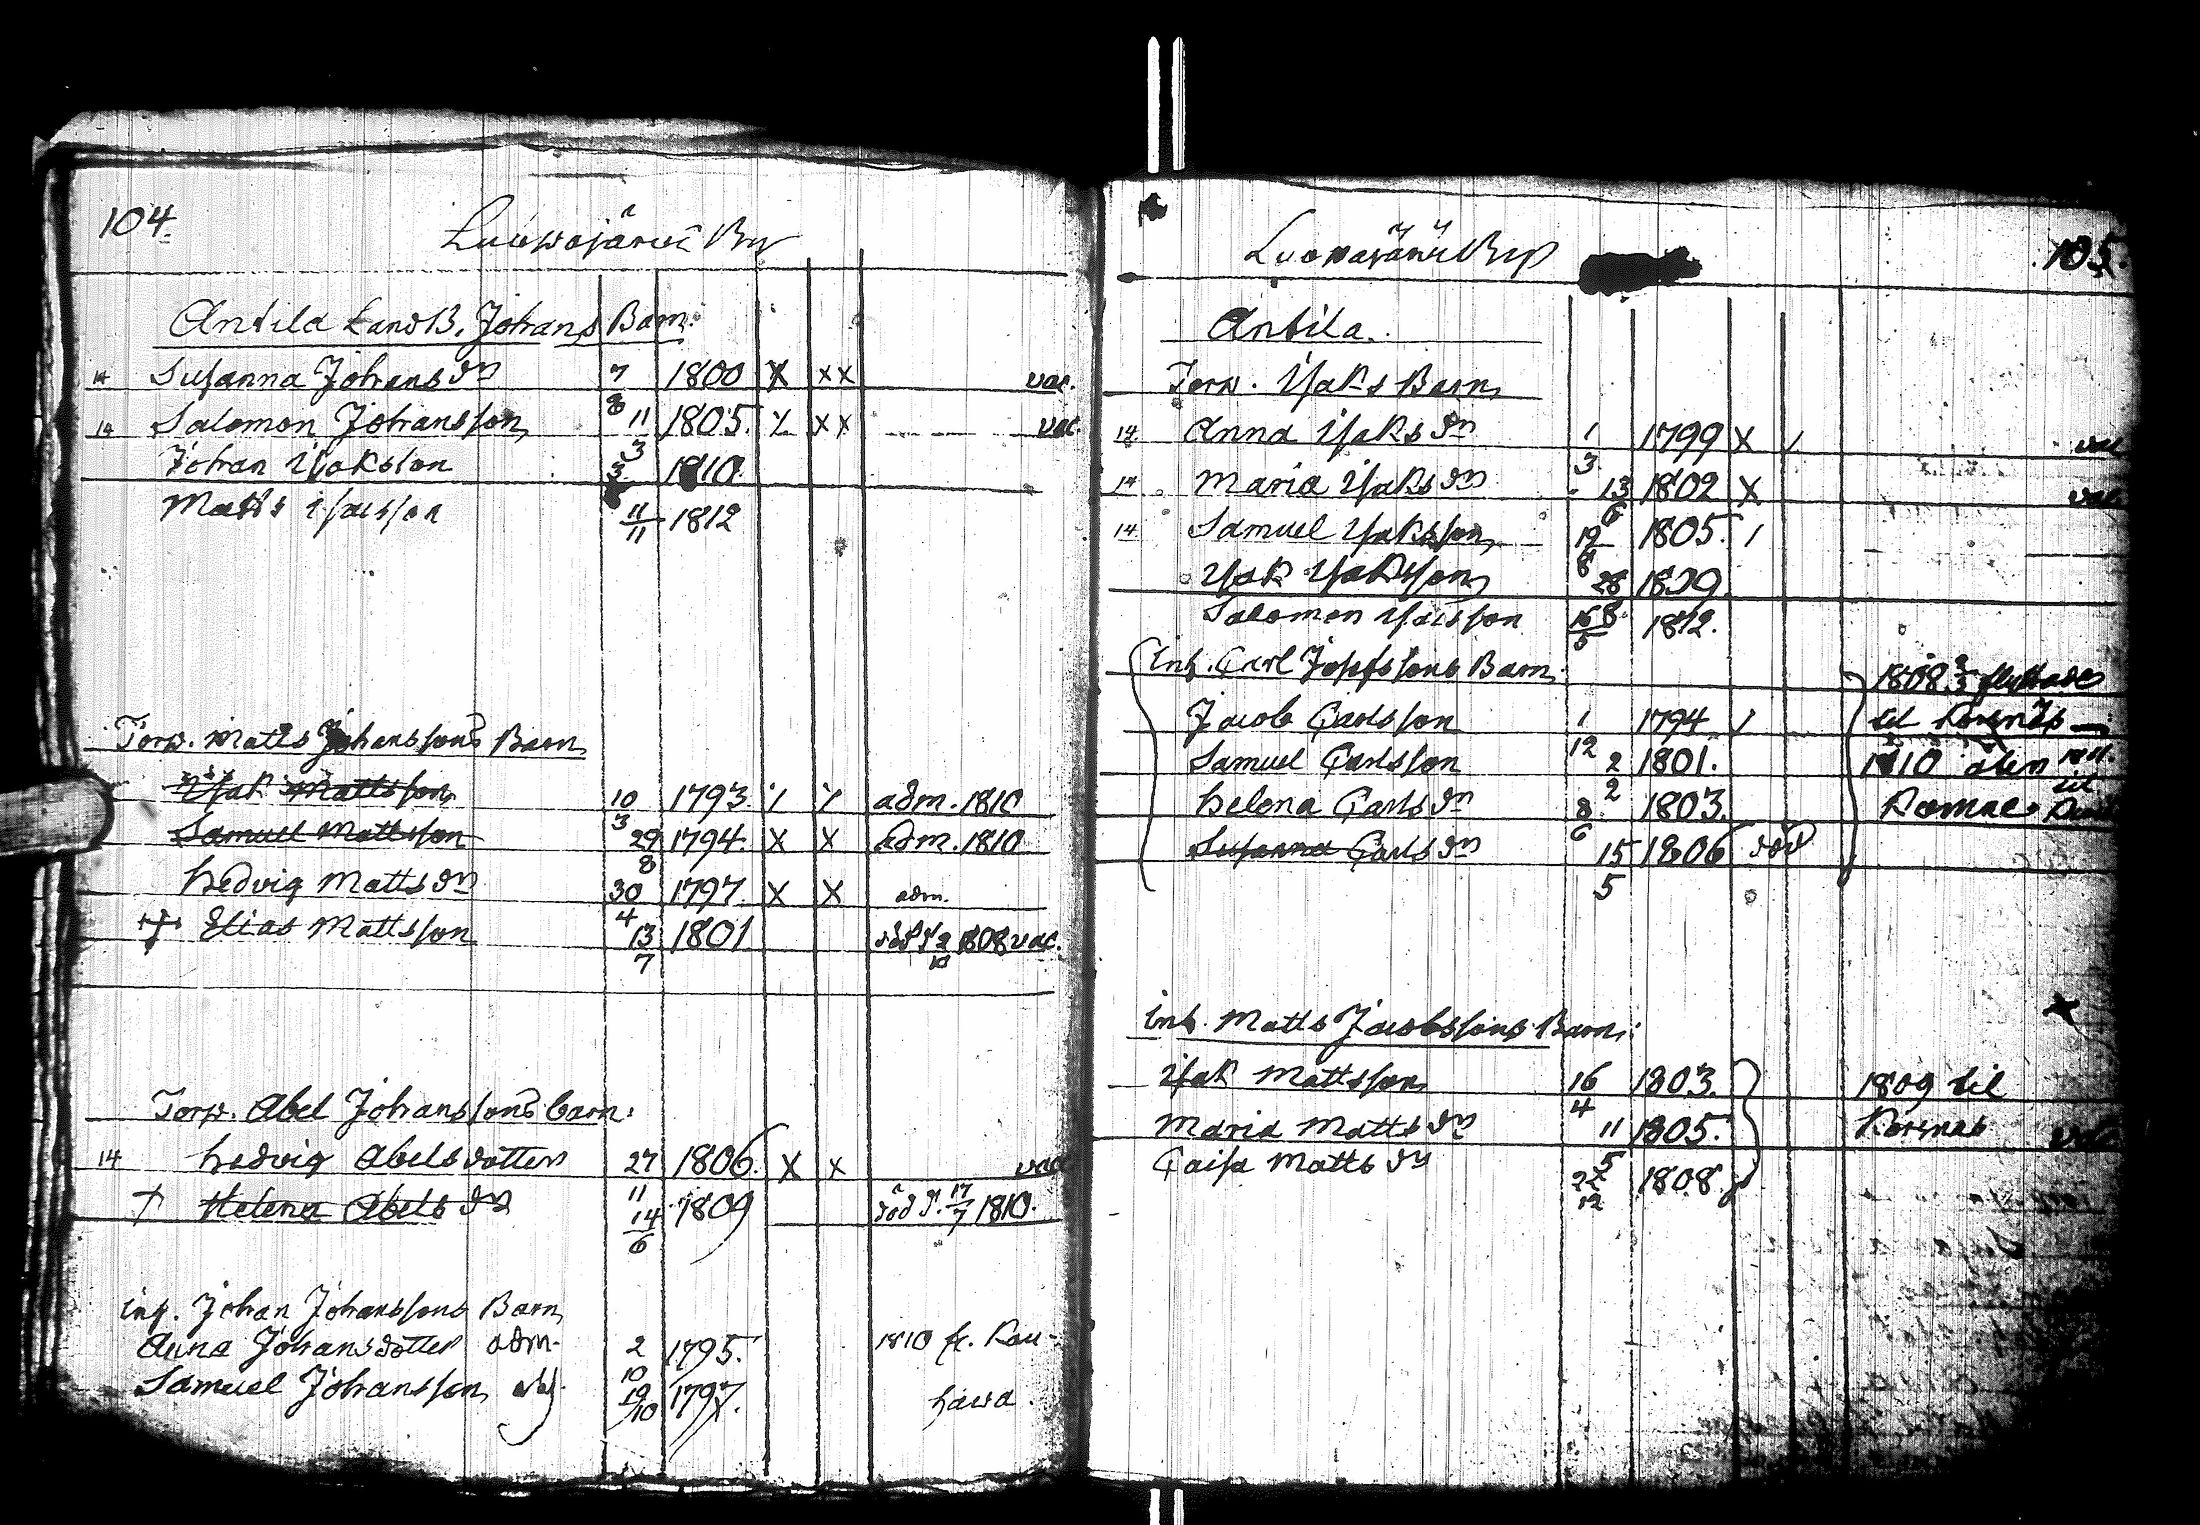 104.
Luowajärwi By
Antila LandB. Johans Barn:
14 Susanna Johans dr 7/8 1800 X XX vac.
14 Salomon Johansson 11/3 1805. X XX vac.
Johan Isaksson 3 1810.
Matts Isacsson 11/11 1812
Torp. Matts Johanssons Barn
Isak Mattsson 10/3 1793. adm. 1810
Samuel Mattsson 29/8 1794. X X adm. 1810
Hedvig Matts dr 30/4 1797. X X adm.
Elias Mattsson 13/7 1801 död d. 2/10 1808 vac.
Torp. Abel Johanssons barn:
14 Hedvig Abelsdotter 27/11 1806. X X vac
† Helena Abels dr 14/6 1809 död d. 17/7 1810.
inh. Johan Johanssons Barn
Anna Johansdotter adm. 2/10 1795. 1810 fr. Kau-
Samuel Johansson 19/10 1797. hawa.
Luowajärwi By
105.
Antila.
Torp. Isaks Barn
14. Anna Isaks dr 1/3 1799 X vac
14. Maria Isaks dr 13/6 1802 X vac
14 Samuel Isaksson 19/8 1805. /
Isak Isaksson 28/8 1809.
Salomon Isacsson 16/5 1812.
Inh. Carl Josefssons Barn.
1808 3/3 flyttade
Jacob Carlsson 1/12 1794 til Korsnäs
Samuel Carlsson 2/2 1801. 1810
Helena Carls dr 8/6 1803.
Susanna Carls dr 15/5 1806 död
Inh. Matts Jacobssons Barn:
Isak Mattsson 16/4 1803. 1809 til
Maria Matts dr 11/5 1805. Korsnäs vac.
Caisa Matts dr 22/12 1808.